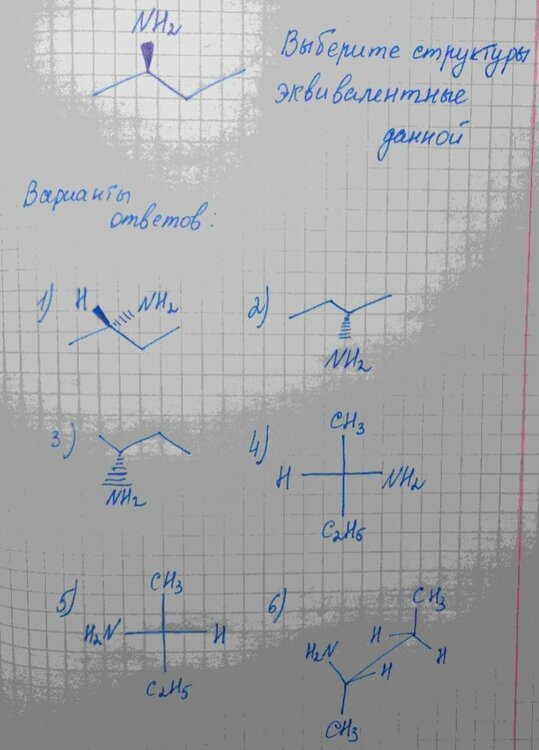 NH₂
Выберите структуры
эквивалентные
данной
Варианты
ответов:
1) H NH₂
2)
NH₂
3)
NH₂
4)
CH₃
H NH₂
C₂H₅
5)
CH₃
H₂N H
C₂H₅
6)
CH₃
H₂N H H
H
CH₃